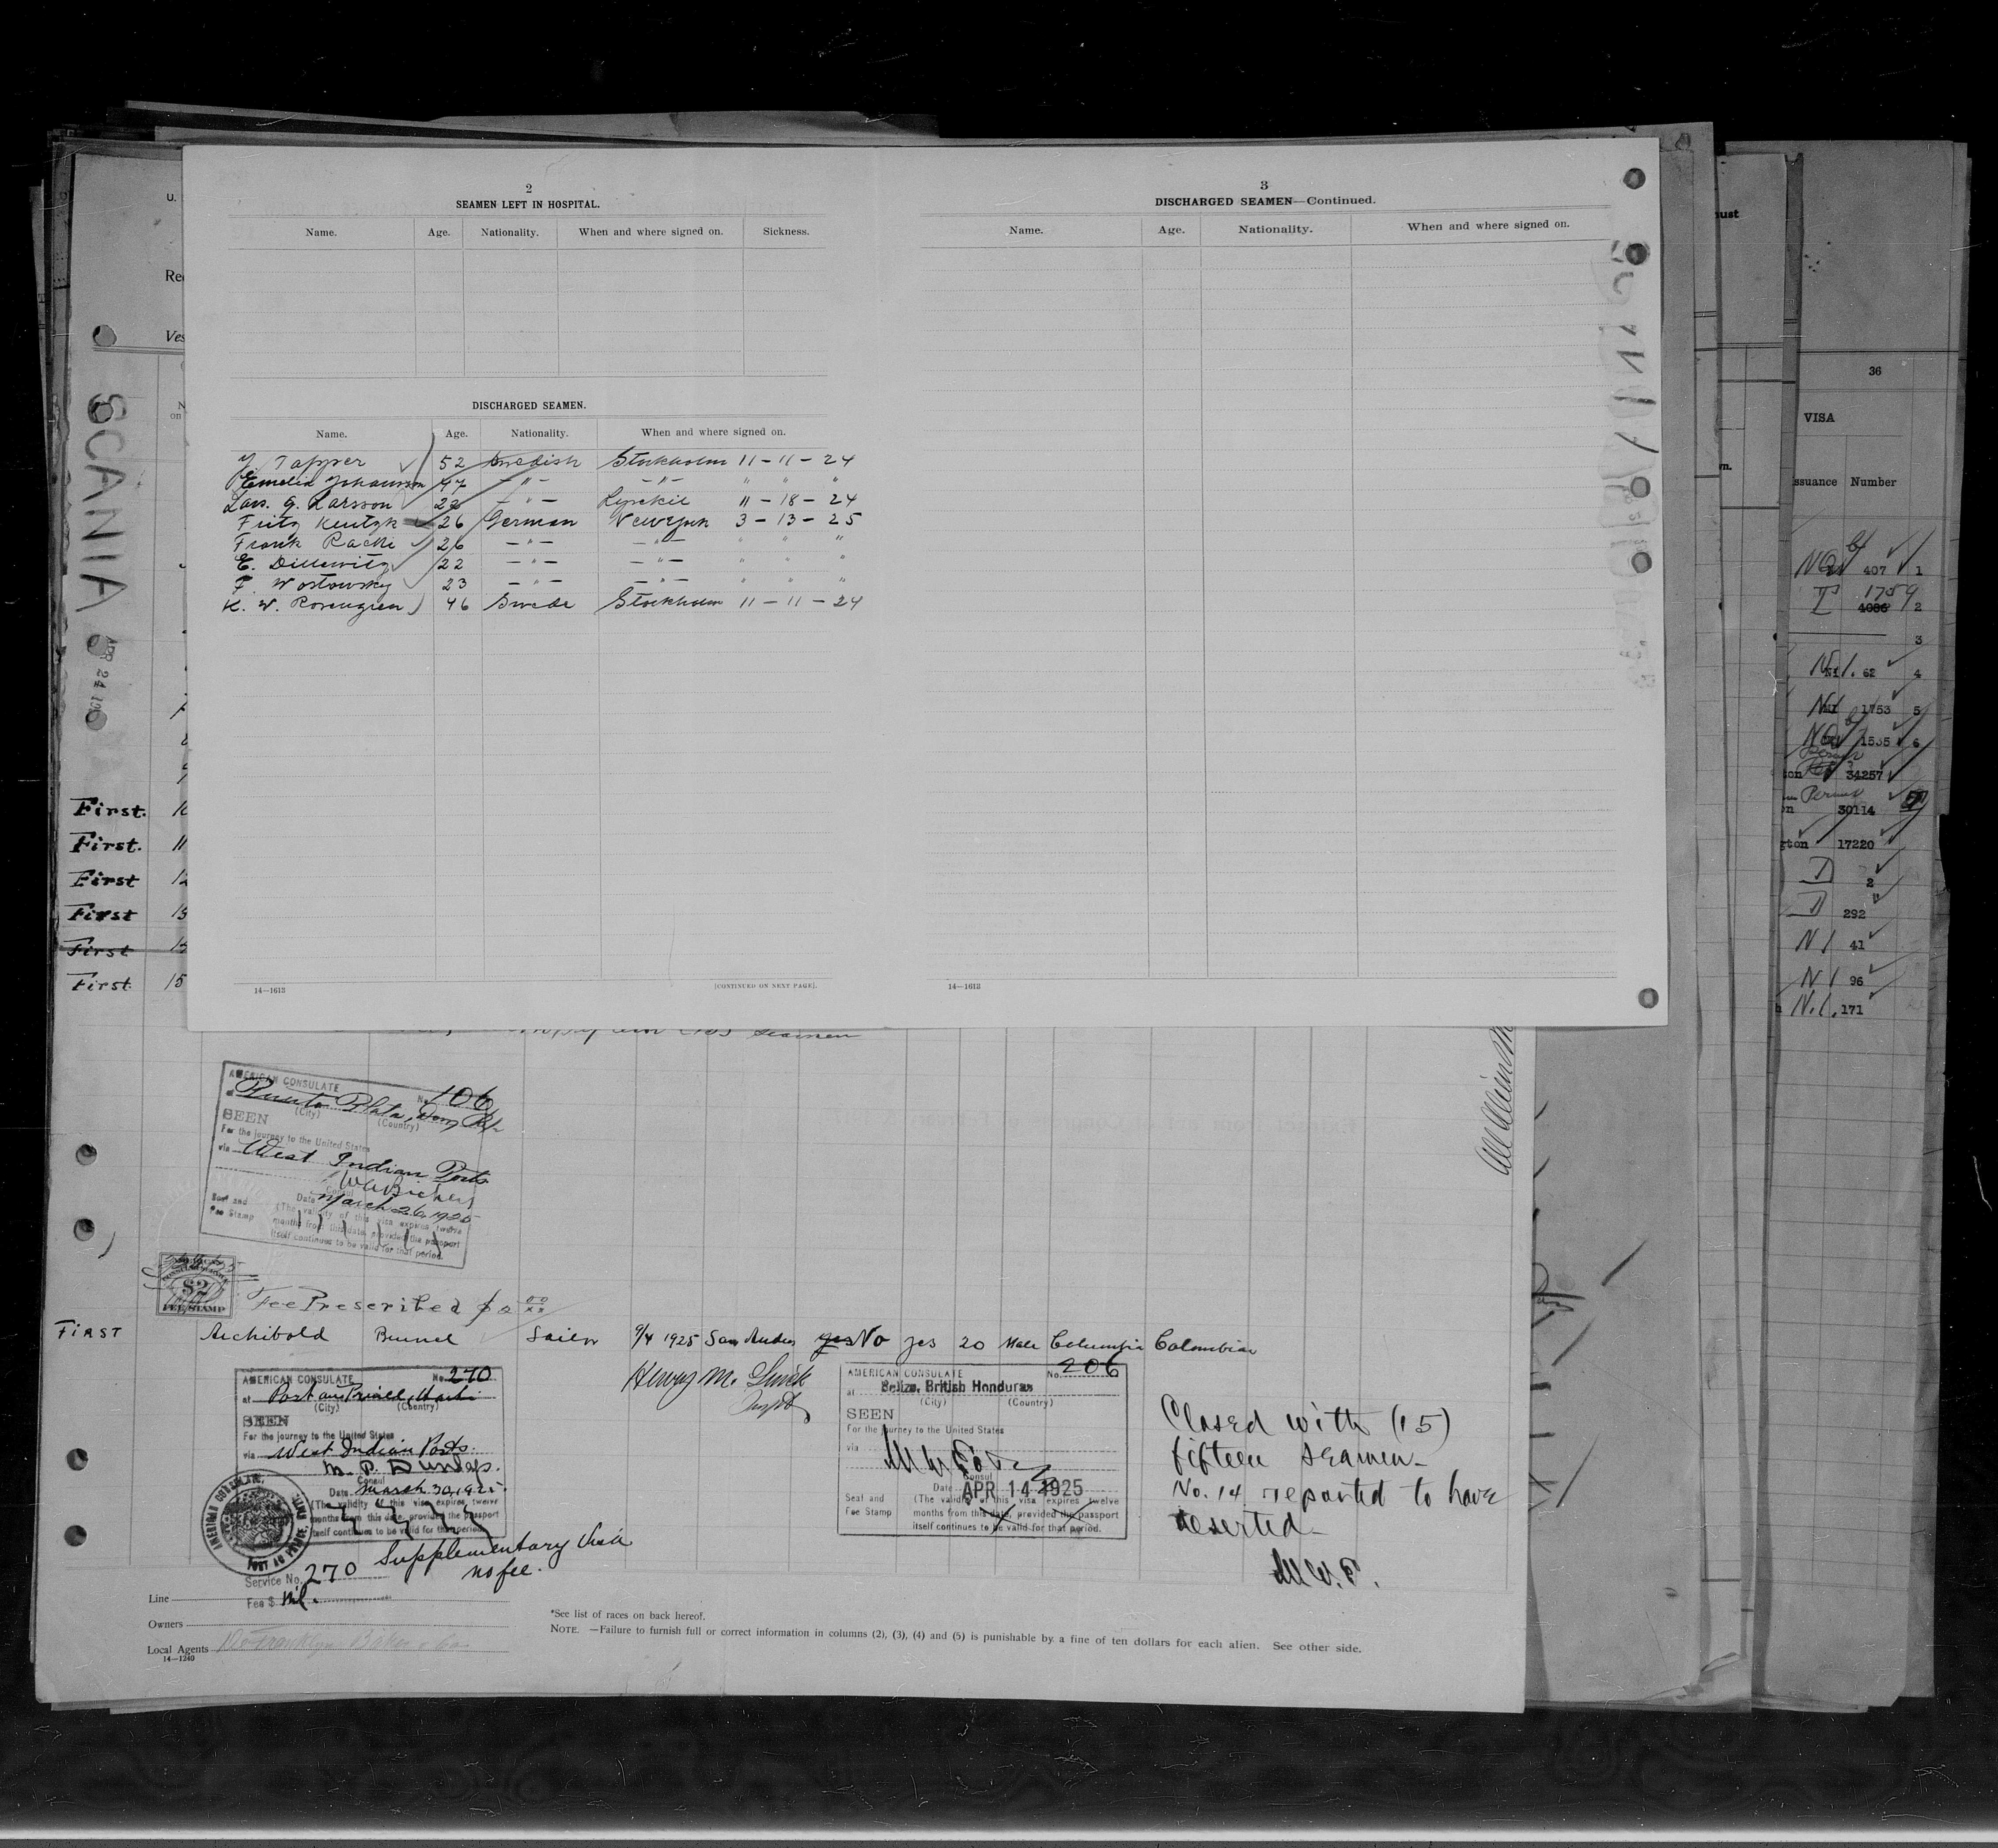 2
SEAMEN LEFT IN HOSPITAL.
Name. Age. Nationality. When and where signed on. Sickness.
DISCHARGED SEAMEN.
Name. Age. Nationality. When and where signed on.
J. Tapper 52 Swedish Stockholm 11-11-24
Emelia Johansson 47 -"- -"- " " "
Lars. G. Larsson 22 -"- Lysekil 11-18-24
Fritz 26 German New York 3-13-25
Frank Racki 26 -"- -"- " " "
E. 22 -"- -"- " " "
F. Wostowsky 23 -"- -"- " " "
K. W. Rosengren 46 Swede Stockholm 11-11-24
14—1613 [CONTINUED ON NEXT PAGE].
3
DISCHARGED SEAMEN—Continued.
Name. Age. Nationality. When and where signed on.
14—1613
U.
Ves
SCANIA
APR 24
First. 10
First. 11
First 12
First 13
First 14
First. 15
36
VISA
ssuance Number
407 1
1759
4086 2
3
N1. 62 4
N1 1753 5
1535 6
34257
Permit
30114
gton 17220
D 2
D 292
N1 41
N1 96
N.1. 171
seamen
AMERICAN CONSULATE
at Puerto Plata, Dom. Rep. No. 106
(City) (Country)
SEEN
For the journey to the United States
via West Indian Ports
Consul
Date March 26, 1925
Seal and Fee Stamp
(The validity of this visa expires twelve
months from this date, provided the passport
itself continues to be valid for that period.
$2
FEE STAMP
Fee Prescribed $2 00/xx
FIRST Archibold Sailor 9/4 1925 San Andres yes No yes 20 Male Columbia Colombian
AMERICAN CONSULATE No. 270
at Port au Prince, Haiti
(City) (Country)
SEEN
For the journey to the United States
via West Indian Ports.
M. P. Dunlap.
Consul
Date March 30, 1925.
(The validity of this visa expires twelve
months from this date, provided the passport
itself continues to be valid for that period
AMERICAN CONSULATE, PORT AU PRINCE, HAITI.
Supplementary Visa
no fee.
Service No. 270
Fee $ Nil.
Henry M.
AMERICAN CONSULATE No. 206
at Belize, British Honduras
(City) (Country)
SEEN
For the journey to the United States
via
Consul
Date APR 14 1925
Seal and Fee Stamp
(The validity of this visa expires twelve
months from this date, provided the passport
itself continues to be valid for that period.
Closed with (15)
fifteen seamen—
No. 14 reported to have
deserted—
M W. P.
Line
Owners
Local Agents Franklyn Baker & Co
14—1240
*See list of races on back hereof.
NOTE.—Failure to furnish full or correct information in columns (2), (3), (4) and (5) is punishable by a fine of ten dollars for each alien. See other side.